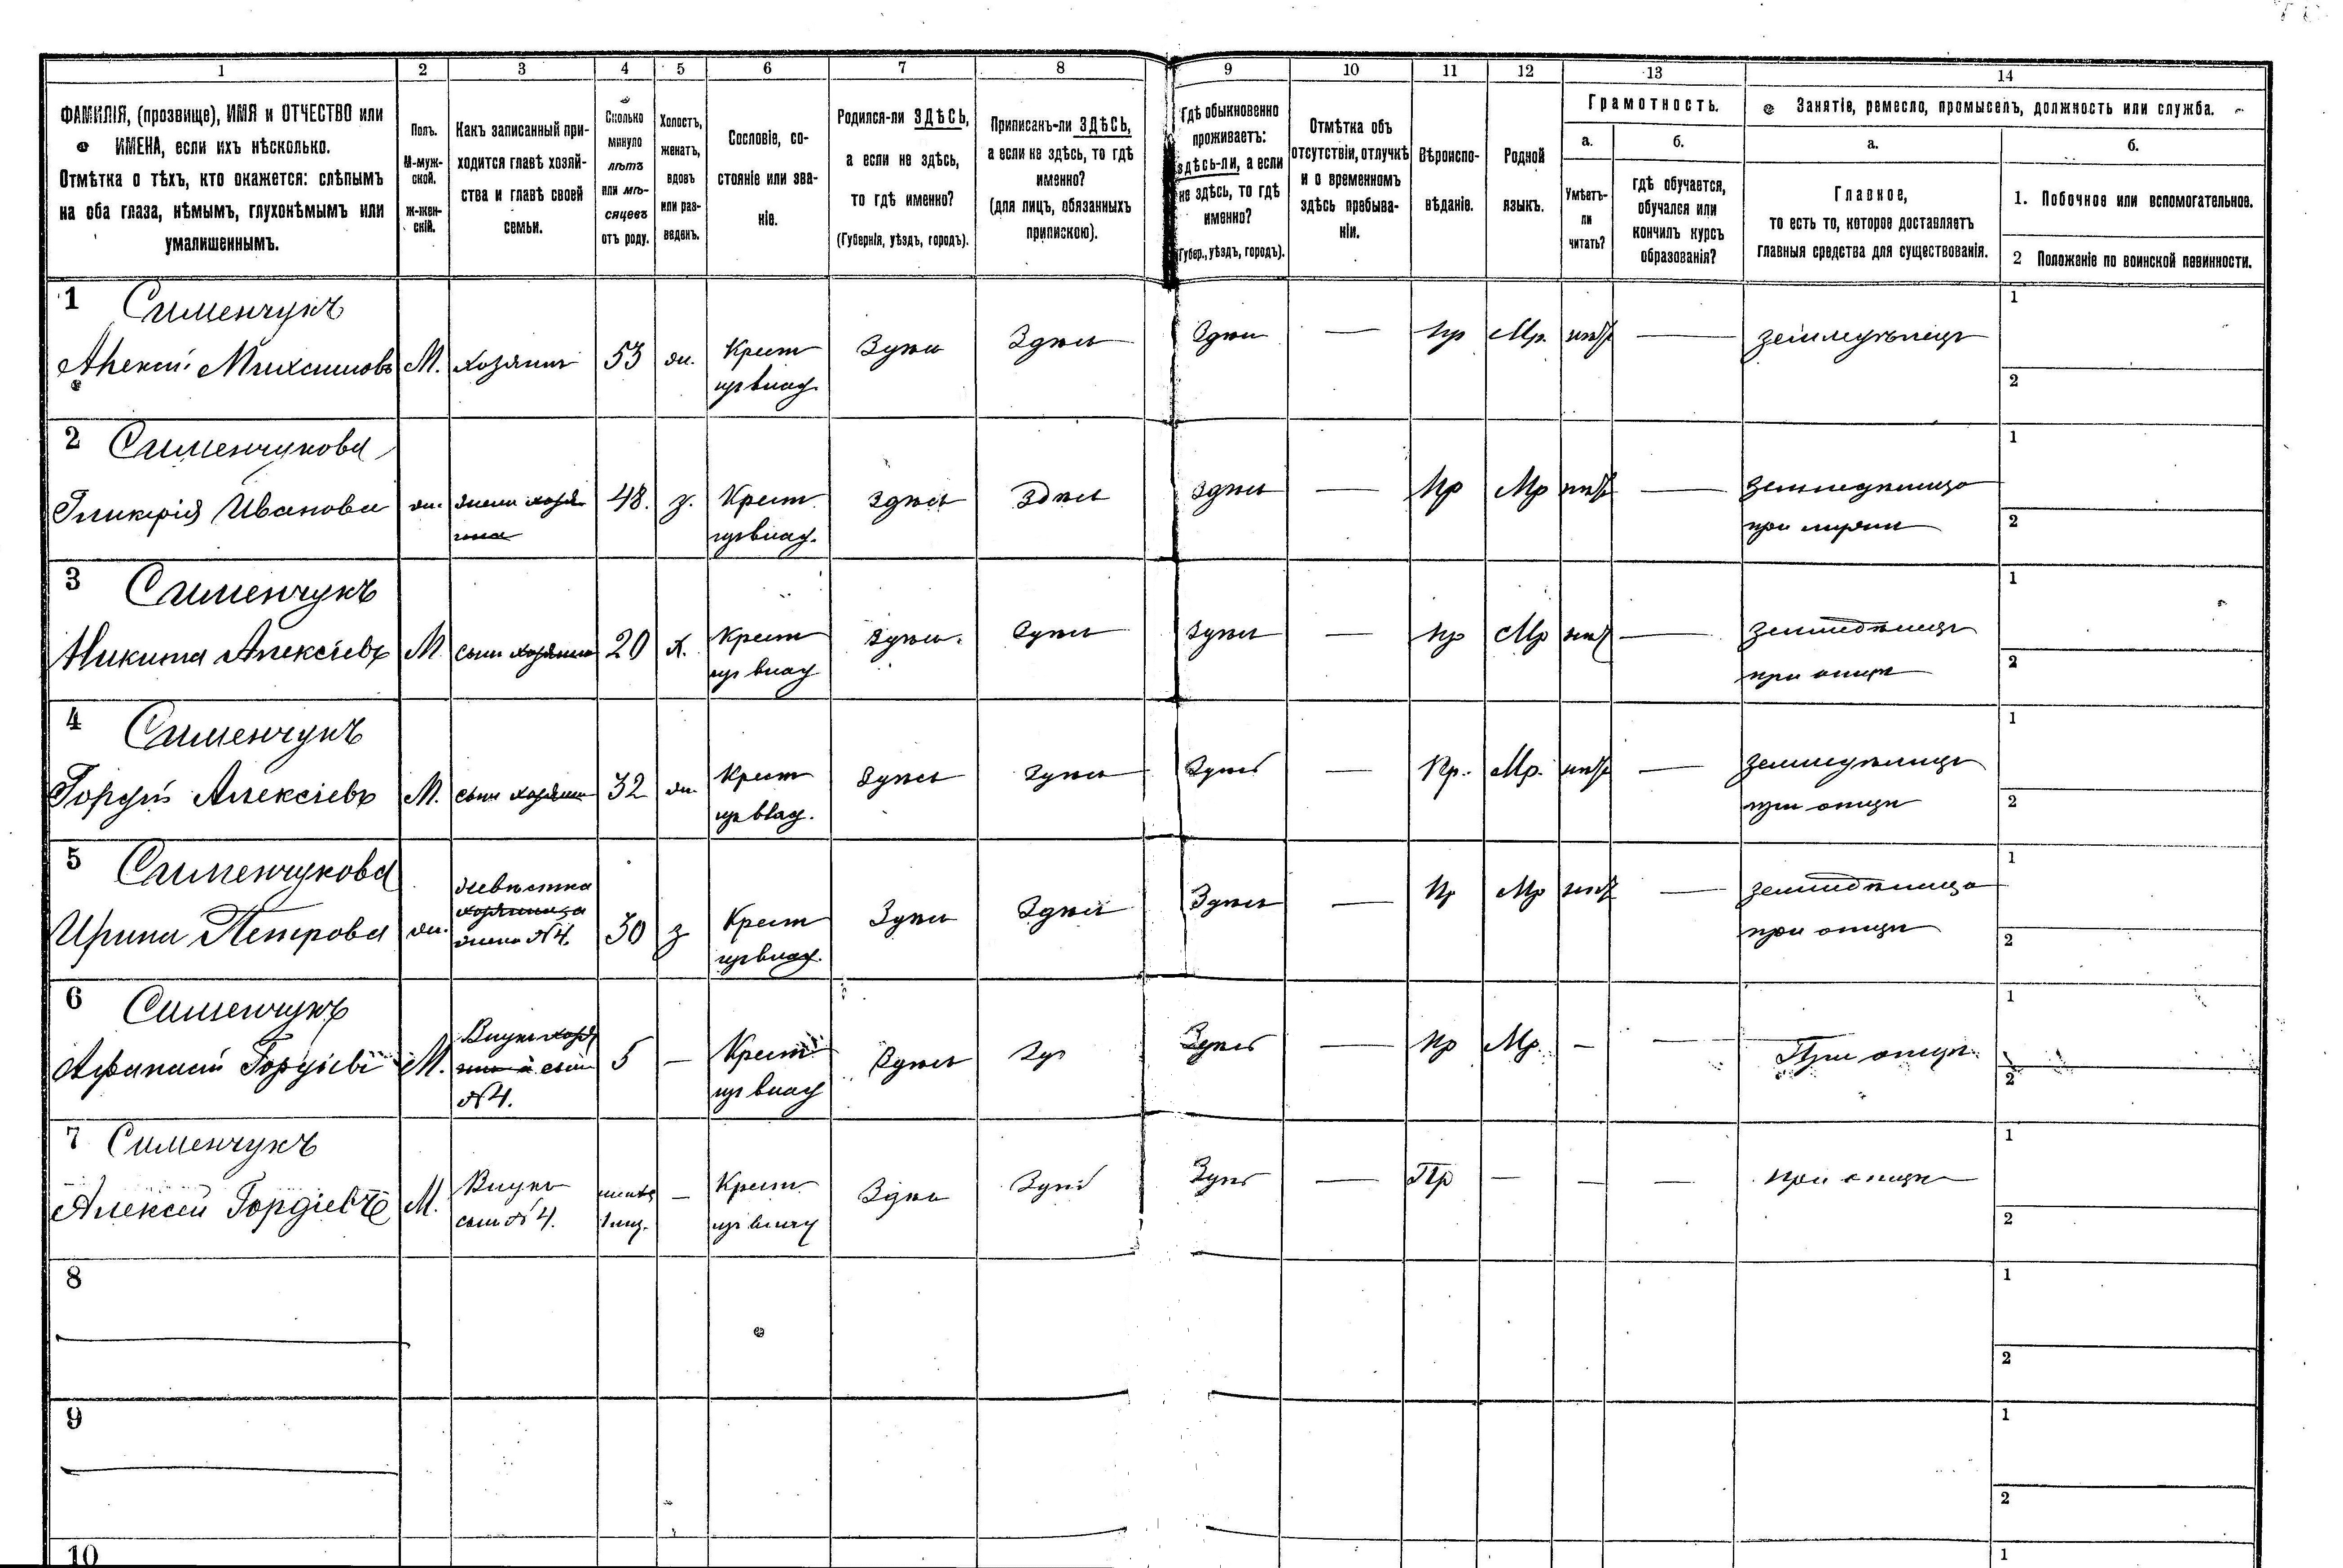 1 2 3 4 5 6 7 8 9 10 11 12 13 14
ФАМИЛІЯ, (прозвище), ИМЯ и ОТЧЕСТВО или
ИМЕНА, если ихъ нѣсколько.
Отмѣтка о тѣхъ, кто окажется: слѣпымъ
на оба глаза, нѣмымъ, глухонѣмымъ или
умалишеннымъ.
Полъ.
М-муж-
ской.
Ж-жен-
скій.
Какъ записанный при-
ходится главѣ хозяй-
ства и главѣ своей
семьи.
Сколько
минуло
лѣтъ
или мѣ-
сяцевъ
отъ роду.
Холостъ,
женатъ,
вдовъ
или раз-
веденъ.
Сословіе, со-
стояніе или зва-
ніе.
Родился-ли ЗДѢСЬ,
а если не здѣсь,
то гдѣ именно?
(Губернія, уѣздъ, городъ).
Приписанъ-ли ЗДѢСЬ,
а если не здѣсь, то гдѣ
именно?
(для лицъ, обязанныхъ
припискою).
Гдѣ обыкновенно
проживаетъ:
здѣсь-ли, а если
не здѣсь, то гдѣ
именно?
(Губер., уѣздъ, городъ).
Отмѣтка объ
отсутствіи, отлучкѣ
и о временномъ
здѣсь пребыва-
ніи.
Вѣроиспо-
вѣданіе.
Родной
языкъ.
Грамотность.
а.
Умѣетъ-
ли
читать?
б.
гдѣ обучается,
обучался или
кончилъ курсъ
образованія?
Занятіе, ремесло, промыселъ, должность или служба.
а.
Главное,
то есть то, которое доставляетъ
главныя средства для существованія.
б.
1. Побочное или вспомогательное.
2 Положеніе по воинской повинности.
1 Сименчукъ
Алексій Михаиловъ М. хозяинъ 53 ж. Крест Здѣсь Здѣсь Здѣсь — пр Мр. нѣтъ — земледѣлецъ
изъ влад.
1
2
2 Сименчукова
Гликерія Иванова ж. жена хозя- 48. з. Крест Здѣсь Здѣсь Здѣсь — пр Мр нѣтъ — земледѣлица
ина изъ влад. при мужѣ
1
2
3 Сименчукъ
Никита Алексіевъ М. сынъ хозяина 20 х. Крест Здѣсь Здѣсь Здѣсь — пр Мр нѣтъ — земледѣлецъ
изъ влад при отцѣ
1
2
4 Сименчукъ
Гордій Алексіевъ М. сынъ хозяина 32 ж. Крест Здѣсь Здѣсь Здѣсь — Пр. Мр. нѣтъ — земледѣлецъ
изъ влад. при отцѣ
1
2
5 Сименчукова
Ирина Петрова ж. невѣстка
хозяина
жена №4. 30 з Крест Здѣсь Здѣсь Здѣсь — пр Мр нѣтъ — земледѣлица
изъ влад. при отцѣ
1
2
6 Сименчукъ
Афанасій Гордіевъ М. Внукъ хозя
ина и сынъ
№4. 5 — Крест Здѣсь Зд Здѣсь — пр Мр. — — При отцѣ
изъ влад
1
2
7 Сименчукъ
Алексѣй Гордіевъ М. Внукъ
сынъ №4. 1 мѣс. — Крест Здѣсь Здѣсь Здѣсь — Пр — — — при отцѣ
изъ влад
1
2
8
1
2
9
1
2
10
1